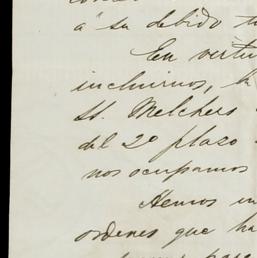 á su debido
En vertu
incluirnos, la
St. Melchers
del 2º plazo
nos ocupamos
Hemos
ordenes que ha